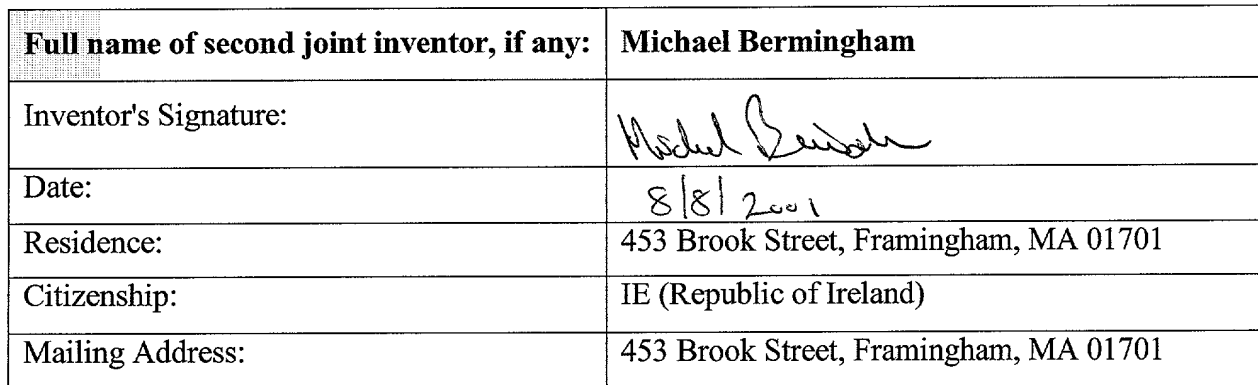 Full name of second joint inventor, if any: Michael Bermingham
Inventor's Signature: Michael Bermingham
Date: 8/8/2001
Residence: 453 Brook Street, Framingham, MA 01701
Citizenship: IE (Republic of Ireland)
Mailing Address: 453 Brook Street, Framingham, MA 01701